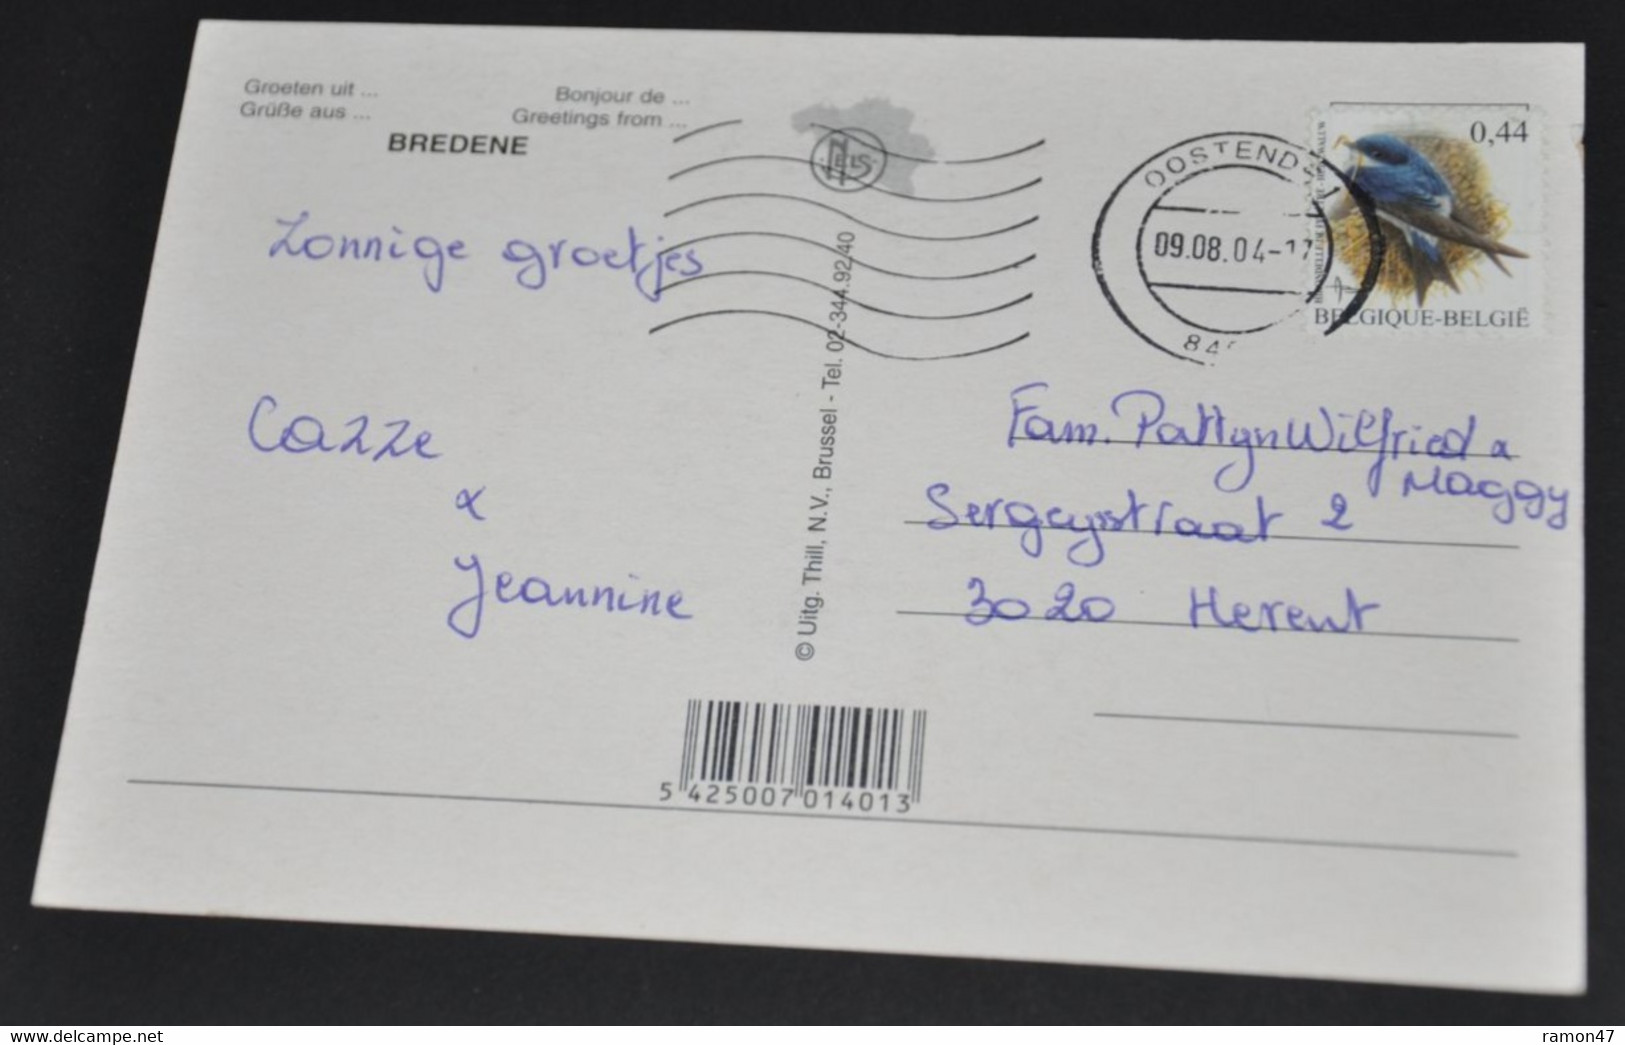 Groeten uit ...
Grüße aus ...
Bonjour de ...
Greetings from ...
BREDENE
NELS
0,44
OOSTENDE 1
09.08.04-17
BELGIQUE-BELGIË
Zonnige groetjes
Cazze
&
Jeannine
© Uitg. Thill, N.V., Brussel - Tel. 02-344.92/40
Fam. Pattyn Wilfried &
Maggy
Sergeystraat 2
3020 Herent
5 425007 014013
www.delcampe.net
ramon47